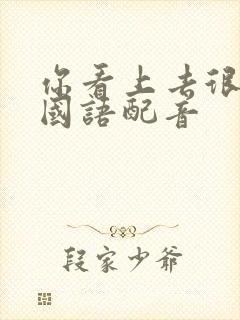 你看上去很
國語配音
段家少爺